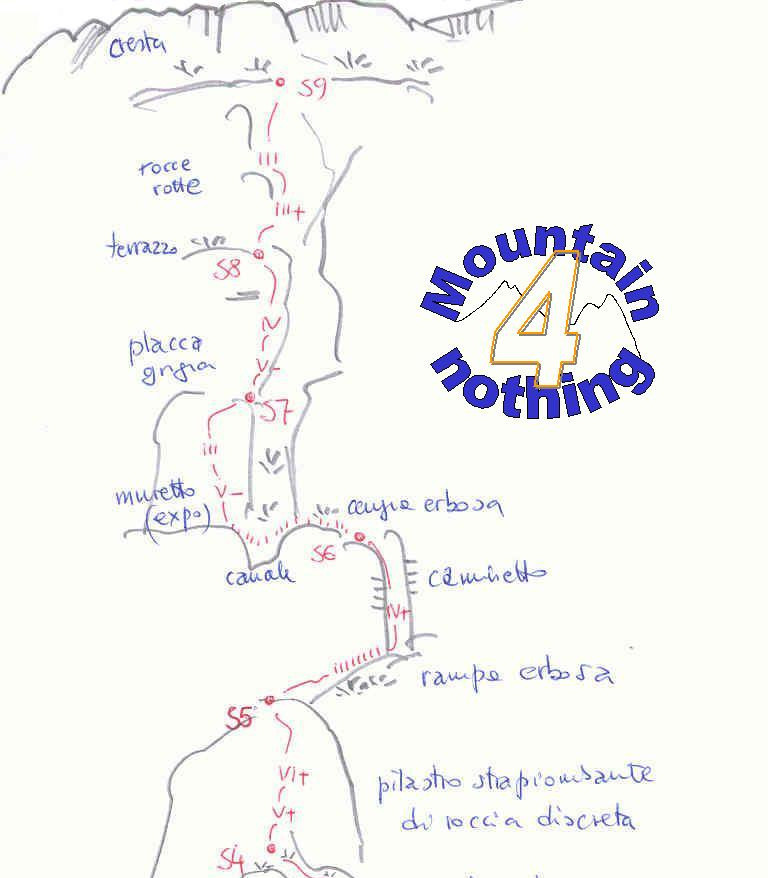 cresta
S9
III
rocce
rotte
III+
terrazzo
S8
IV
placca
grigia
V-
S7
III
muretto
(expo)
V-
cengia erbosa
S6
canale
caminetto
IV+
rampa erbosa
S5
VI+
pilastro strapiombante
di roccia discreta
V+
S4
Mountain
4
nothing